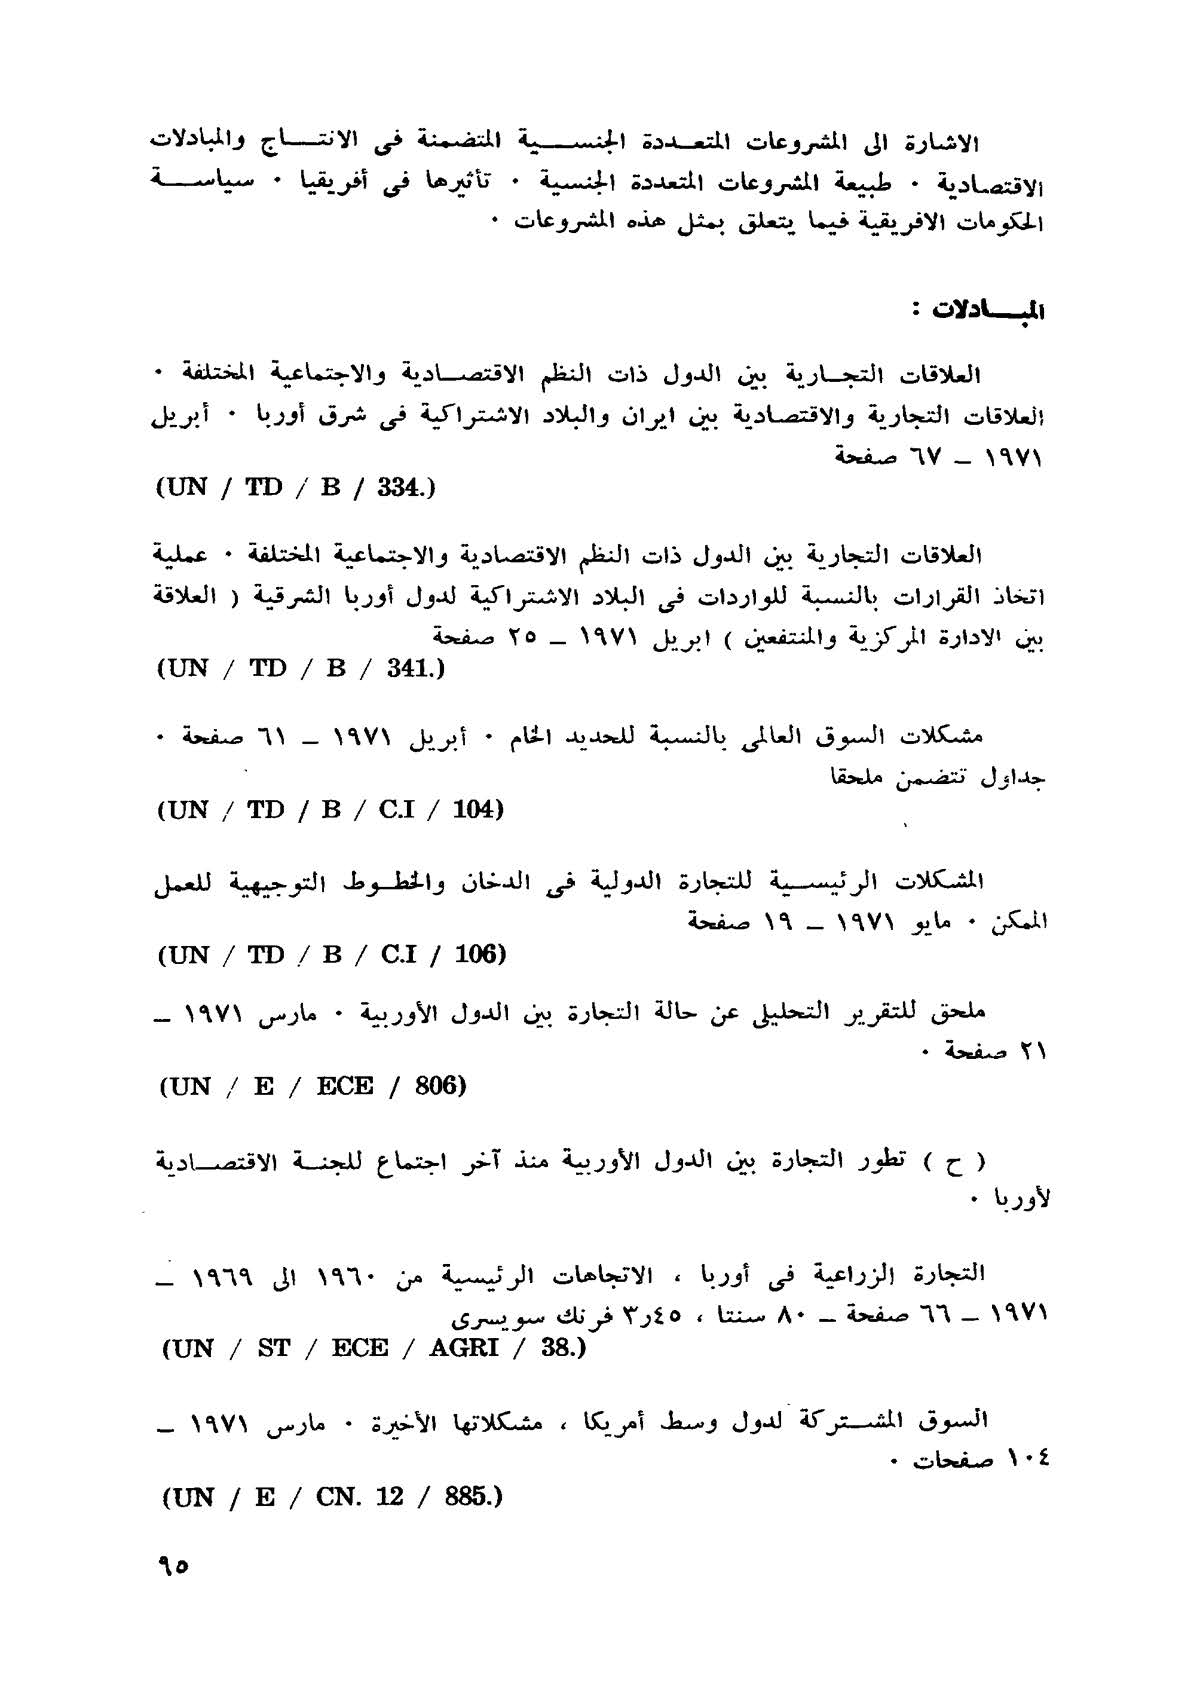 الاشارة الى المشروعات المتعددة الجنسية المتضمنة فى الانتاج والمبادلات
الاقتصادية ٠ طبيعة المشروعات المتعددة الجنسية ٠ تأثيرها فى أفريقيا ٠ سياسة
الحكومات الافريقية فيما يتعلق بمثل هذه المشروعات ٠
المبادلات :
العلاقات التجارية بين الدول ذات النظم الاقتصادية والاجتماعية المختلفة ٠
العلاقات التجارية والاقتصادية بين ايران والبلاد الاشتراكية فى شرق أوربا ٠ أبريل
١٩٧١ ــ ٦٧ صفحة
(UN / TD / B / 334.)
العلاقات التجارية بين الدول ذات النظم الاقتصادية والاجتماعية المختلفة ٠ عملية
اتخاذ القرارات بالنسبة للواردات فى البلاد الاشتراكية لدول أوربا الشرقية ( العلاقة
بين الادارة المركزية والمنتفعين ) ابريل ١٩٧١ ــ ٢٥ صفحة
(UN / TD / B / 341.)
مشكلات السوق العالمى بالنسبة للحديد الخام ٠ أبريل ١٩٧١ ــ ٦١ صفحة ٠
جداول تتضمن ملحقا
(UN / TD / B / C.I / 104)
المشكلات الرئيسية للتجارة الدولية فى الدخان والخطوط التوجيهية للعمل
الممكن ٠ مايو ١٩٧١ ــ ١٩ صفحة
(UN / TD / B / C.I / 106)
ملحق للتقرير التحليلى عن حالة التجارة بين الدول الأوربية ٠ مارس ١٩٧١ ــ
٢١ صفحة ٠
(UN / E / ECE / 806)
( ح ) تطور التجارة بين الدول الأوربية منذ آخر اجتماع للجنة الاقتصادية
لأوربا ٠
التجارة الزراعية فى أوربا ، الاتجاهات الرئيسية من ١٩٦٠ الى ١٩٦٩ ــ
١٩٧١ ــ ٦٦ صفحة ــ ٨٠ سنتا ، ٤٥ر٣ فرنك سويسرى
(UN / ST / ECE / AGRI / 38.)
السوق المشتركة لدول وسط أمريكا ، مشكلاتها الأخيرة ٠ مارس ١٩٧١ ــ
١٠٤ صفحات ٠
(UN / E / CN. 12 / 885.)
٩٥